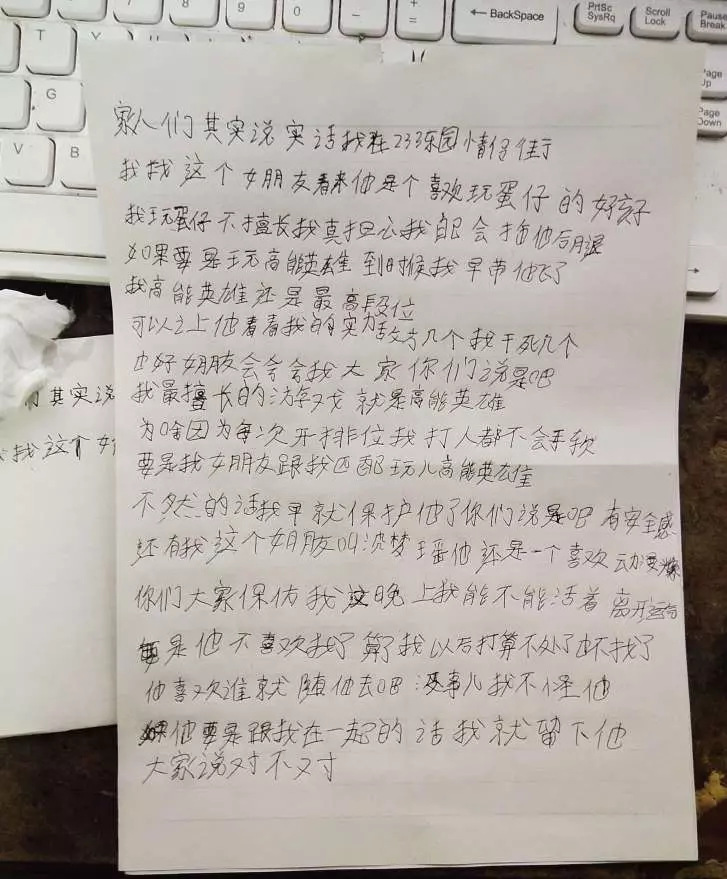 BackSpace
PrtSc
SysRq
Scroll
Lock
Pause
Break
Page
Up
Page
Down
T
Y
G
V
B
9
0
-
+
=
家人们其实说实话我在233乐园情侣街
我找这个女朋友看来他是个喜欢玩蛋仔的好孩子
我玩蛋仔不擅长我真担心我自己会拖他后腿
如果要是玩高能英雄到时候我早带他飞了
我高能英雄还是最高段位
可以之上他看看我的实力敌方几个我干死几个
也好女朋友会会会我大家你们说是吧
我最擅长的游戏就是高能英雄
为啥因为每次开排位我打人都不会手软
要是我女朋友跟我匹配玩儿高能英雄
不然的话我早就保护他了你们说是吧有安全感
还有我这个女朋友叫沈梦瑶他还是一个喜欢动漫
你们大家保佑我这晚上我能不能活着离开运气
是他不喜欢我了算了我以后打算不处了也不找了
他喜欢谁就随他去吧没事儿我不怪他
如果他要是跟我在一起的话我就留下他
大家说对不对
们其实说
我找这个女